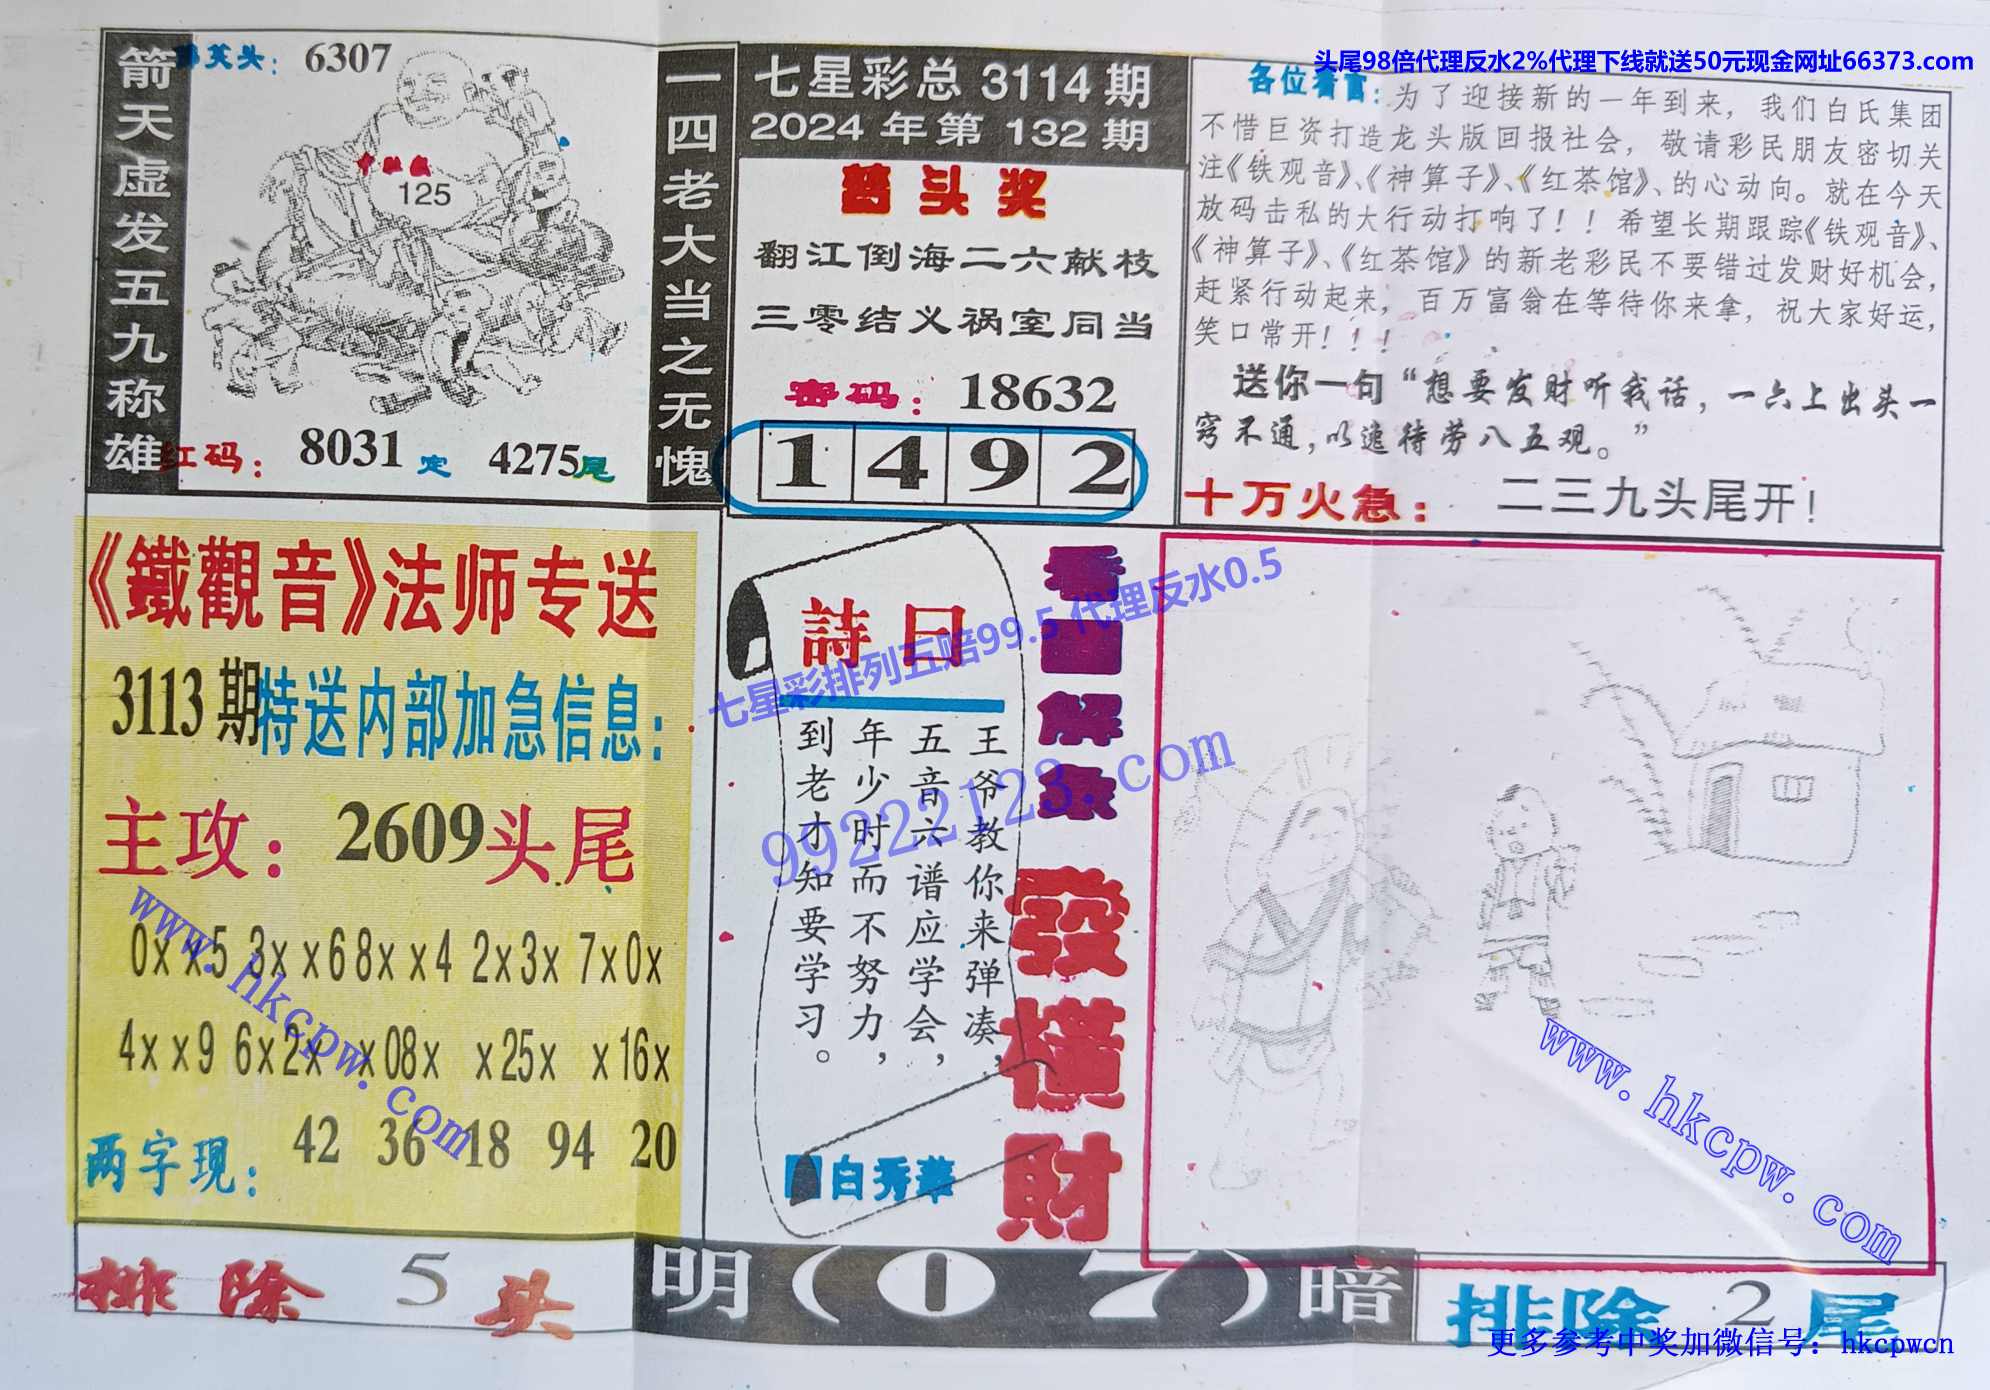 头尾98倍代理反水2%代理下线就送50元现金网址66373.com
箭天虚发五九称雄
笑头：6307
中肚数
125
红码：8031定 4275尾
一四老大当之无愧
七星彩总 3114 期
2024 年第 132 期
头奖
翻江倒海二六献枝
三零结义祸室同当
密码：18632
1 4 9 2
各位看官：为了迎接新的一年到来，我们白氏集团
不惜巨资打造龙头版回报社会，敬请彩民朋友密切关
注《铁观音》、《神算子》、《红茶馆》、的心动向。就在今天
放码击私的大行动打响了！！希望长期跟踪《铁观音》、
《神算子》、《红茶馆》的新老彩民不要错过发财好机会，
赶紧行动起来，百万富翁在等待你来拿，祝大家好运，
笑口常开！！！
送你一句“想要发财听我话，一六上出头一
窍不通，以逸待劳八五观。”
十万火急：二三九头尾开！
《鐵觀音》法师专送
3113期特送内部加急信息：
主攻：2609头尾
0xx5 3xx6 8xx4 2x3x 7x0x
4xx9 6x2x x08x x25x x16x
两字现：42 36 18 94 20
詩曰
王爷教你来弹凑，
五音六谱应学会，
年少时而不努力，
到老才知要学习。
白秀華
看图解象
發横財
七星彩排列五赔99.5 代理反水0.5
99222123.com
www.hkcpw.com
www.hkcpw.com
排除 5 头
明(07)暗
排除 2 尾
更多参考中奖加微信号：hkcpwcn